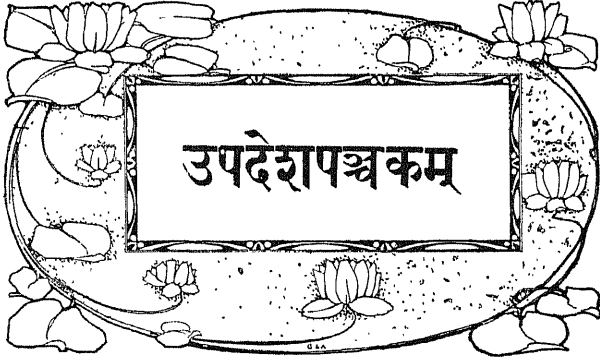 उपदेशपञ्चकम्